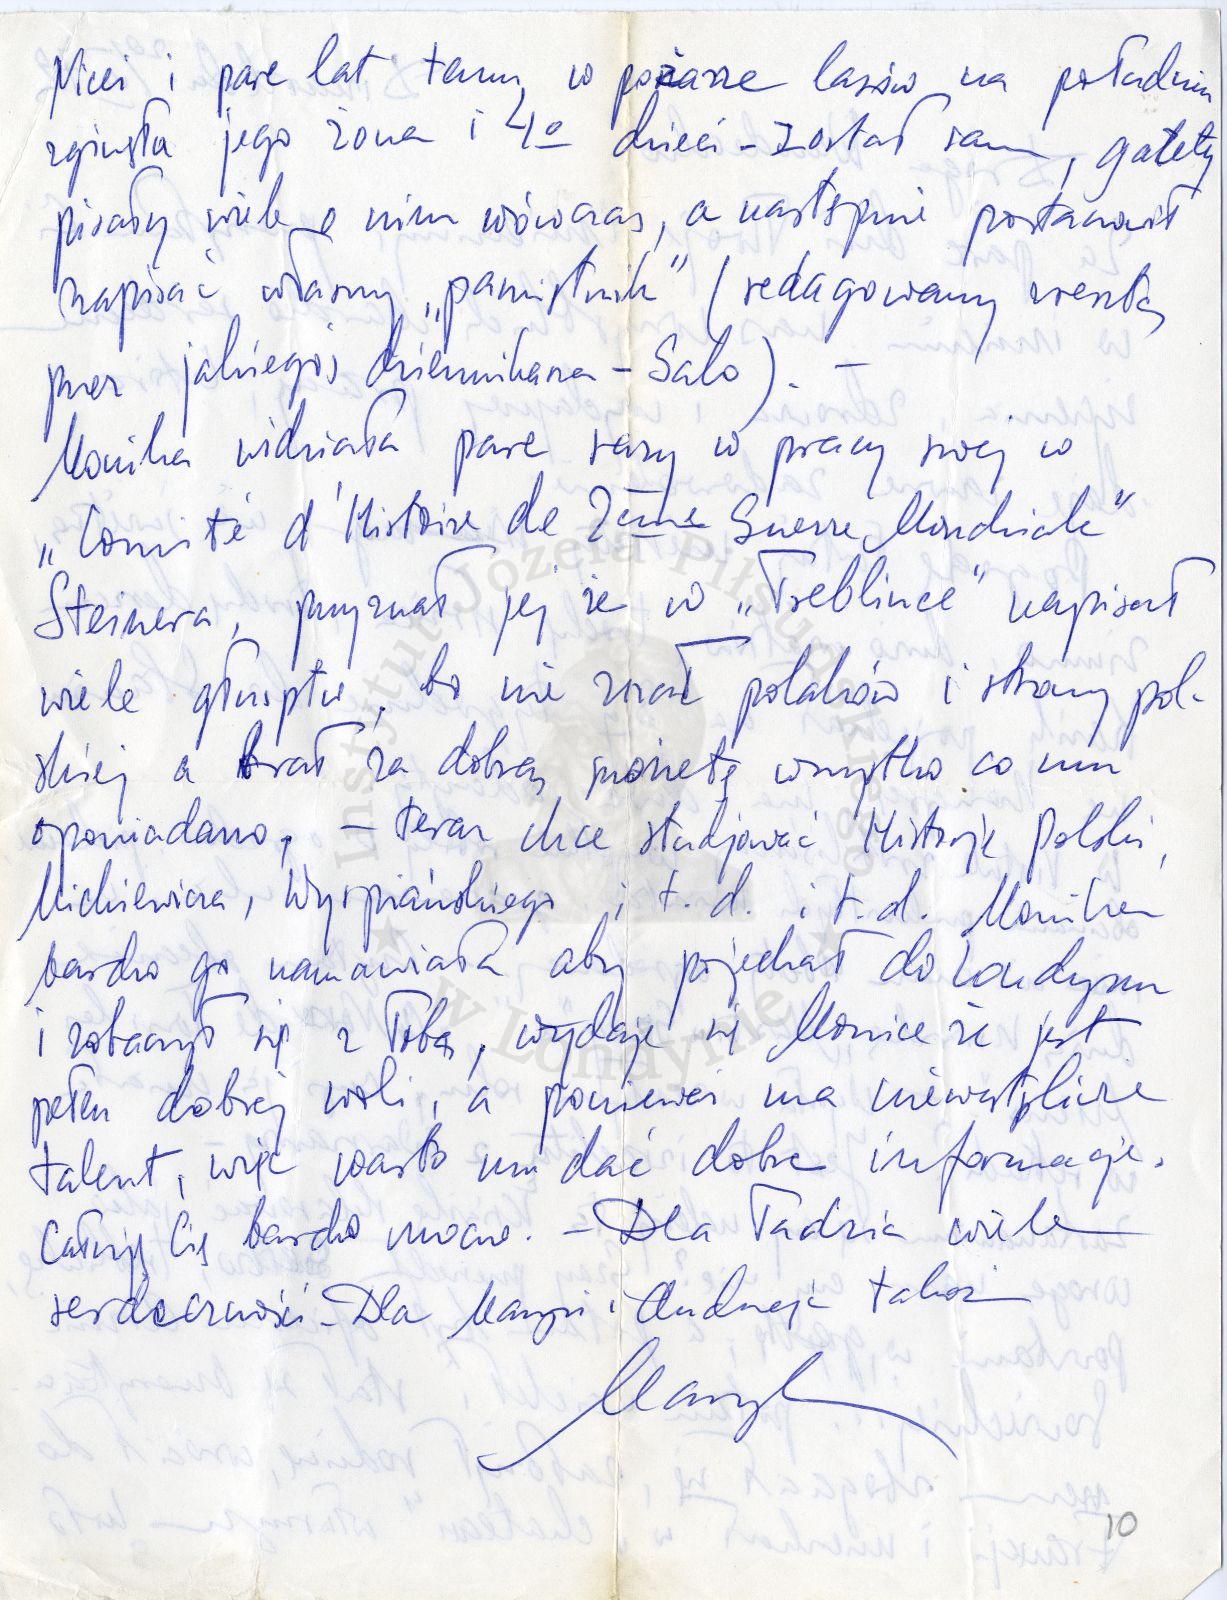 Nicei i parę lat temu, w pożarze lasów na południu
zginęła jego żona i 4o dzieci – został sam, gazety
pisały wiele o nim wówczas, a następnie postanowił
napisać własny „pamiętnik" (redagowany zresztą
przez jakiegoś dziennikarza – Galo). –
Monika widziała parę razy w pracy swej w
„Comité d'Histoire de 2ème Guerre Mondiale"
Steinera, przyznał jej że w „Treblince" napisał
wiele głupstw, bo nie znał polaków i strony pol-
skiej a brał za dobrą monetę wszystko co mu
opowiadano, – teraz chce studjować Historję Polski,
Mickiewicza, Wyspiańskiego i t. d. i t. d. Monika
bardzo go namawiała aby pojechał do Londynu
i zobaczył się z Tobą, wydaje się Monice że jest
pełen dobrej woli, a ponieważ ma niewątpliwie
talent, więc warto mu dać dobre informacje.
Całuję Cię bardzo mocno. – Dla Tadzia wiele
serdeczności – Dla Marysi i Andrzeja także
Maryla
10
Instytut Józefa Piłsudskiego
w Londynie